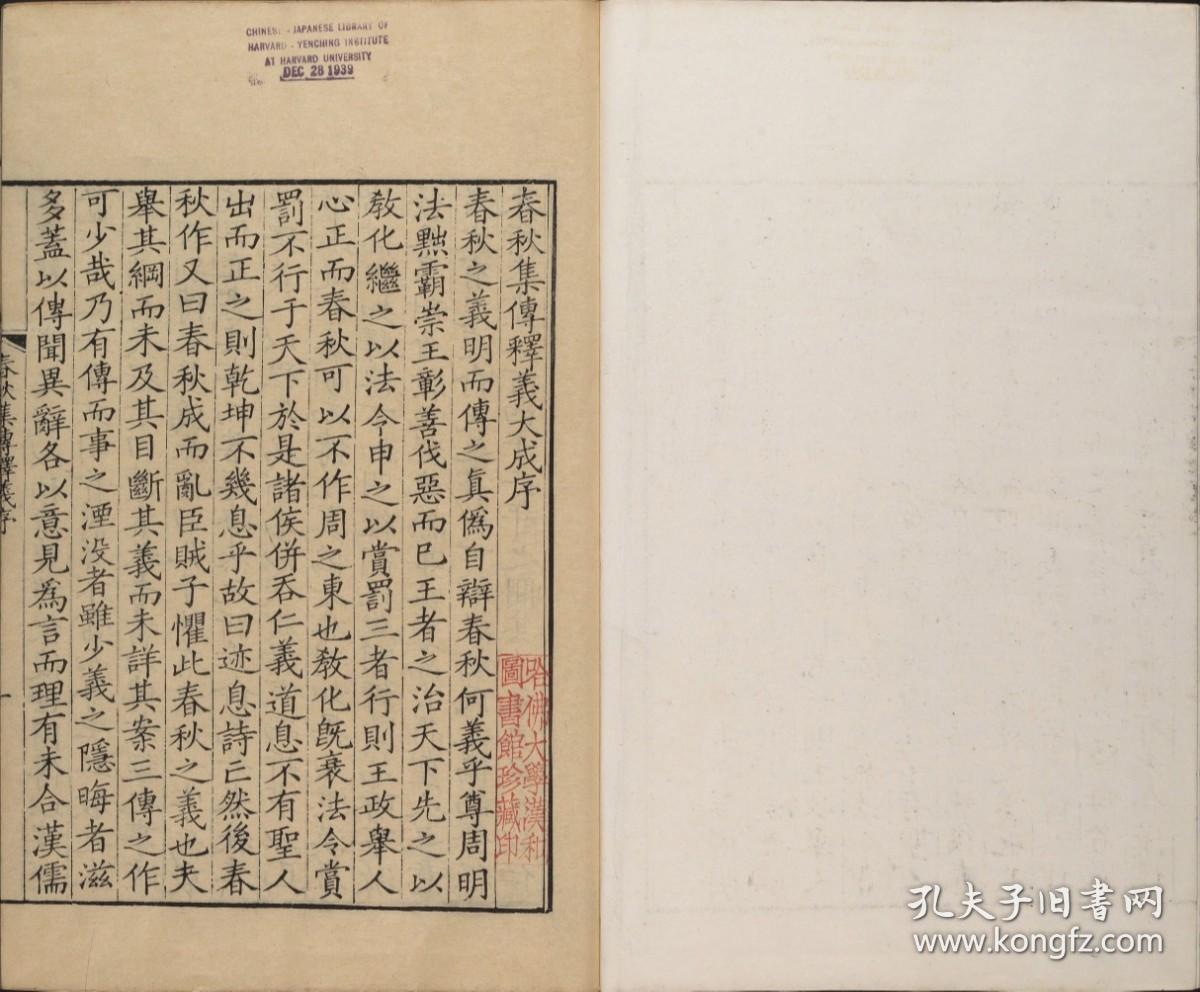 CHINESE - JAPANESE LIBRARY OF
HARVARD - YENCHING INSTITUTE
AT HARVARD UNIVERSITY
DEC 28 1939
春秋集傳釋義大成序
春秋之義明而傳之真僞自辯春秋何義乎尊周明
法黜霸崇王彰善伐惡而已王者之治天下先之以
教化繼之以法令申之以賞罰三者行則王政舉人
心正而春秋可以不作周之東也教化旣衰法令賞
罰不行于天下於是諸侯併吞仁義道息不有聖人
出而正之則乾坤不幾息乎故曰迹息詩亡然後春
秋作又曰春秋成而亂臣賊子懼此春秋之義也夫
舉其綱而未及其目斷其義而未詳其案三傳之作
可少哉乃有傳而事之湮没者雖少義之隱晦者滋
多蓋以傳聞異辭各以意見爲言而理有未合漢儒
春秋集傳釋義序
一
哈佛大學漢和
圖書館珍藏印
孔夫子旧书网
www.kongfz.com